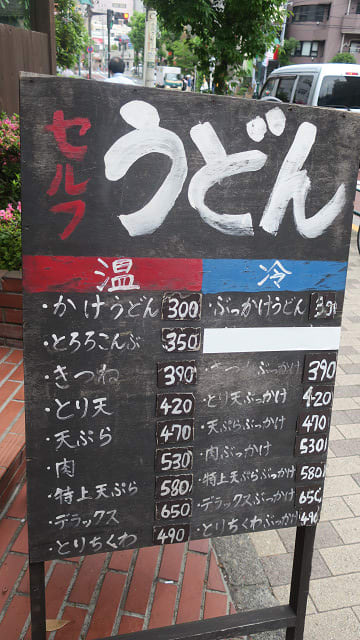 セルフ
うどん
温
・かけうどん 300
・とろろこんぶ 350
・きつね 390
・とり天 420
・天ぷら 470
・肉 530
・特上天ぷら 580
・デラックス 650
・とりちくわ 490
冷
・ぶっかけうどん
・きつねぶっかけ 390
・とり天ぶっかけ 420
・天ぷらぶっかけ 470
・肉ぶっかけ 530
・特上天ぷらぶっかけ 580
・デラックスぶっかけ 650
・とりちくわぶっかけ 490